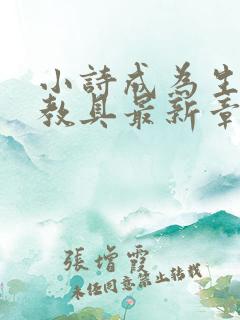 小詩戒為生
教具最新章
張增霞
未經同意禁止轉載